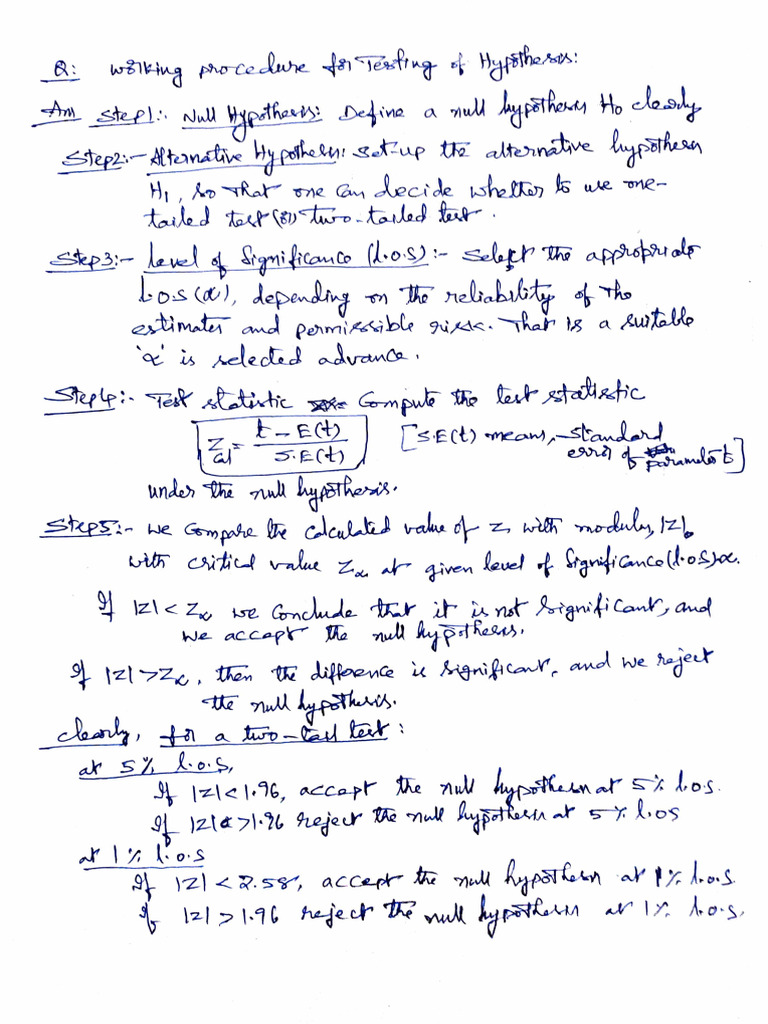 Q: Working procedure for Testing of Hypothesis:
Ans Step1:- Null Hypothesis: Define a null hypothesis H₀ clearly
Step2:- Alternative Hypothesis: set-up the alternative hypothesis
H₁, so that one can decide whether to use one-
tailed test (or) two-tailed test.
Step3:- Level of Significance (l.o.s):- Select the appropriate
l.o.s (α), depending on the reliability of the
estimates and permissible risk. That is a suitable
'α' is selected advance.
Step4:- Test statistic Compute the test statistic
Z_cal = (t - E(t)) / S.E(t) [S.E(t) means, standard
error of parameter t]
under the null hypothesis.
Step5:- We compare the calculated value of Z, with modulus, |Z|,
with critical value Z_α at given level of Significance (l.o.s) α.
If |Z| < Z_α we conclude that it is not significant, and
we accept the null hypothesis.
If |Z| > Z_α, then the difference is significant, and we reject
the null hypothesis.
Clearly, for a two-tail test:
at 5% l.o.s,
If |Z| < 1.96, accept the null hypothesis at 5% l.o.s.
If |Z| > 1.96 reject the null hypothesis at 5% l.o.s
at 1% l.o.s
If |Z| < 2.58, accept the null hypothesis at 1% l.o.s.
If |Z| > 1.96 reject the null hypothesis at 1% l.o.s.